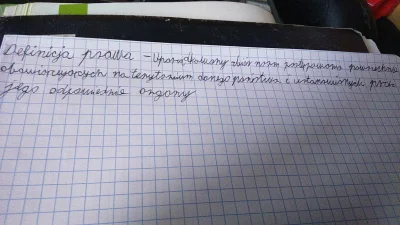 Definicja prawa - Uporządkowany zbiór norm postępowania powszechnie
obowiązujących na terytorium danego państwa i ustanowionych przez
jego odpowiednie organy